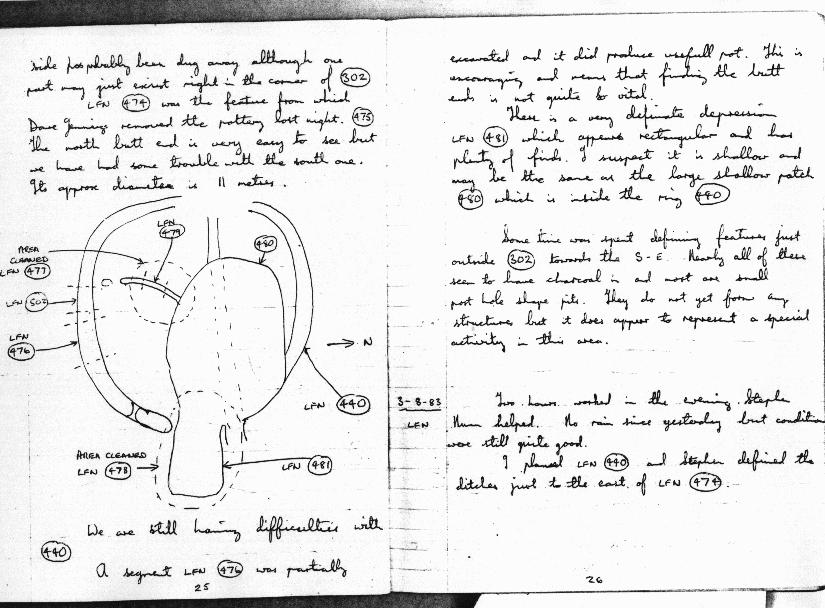 side has probably been dug away although one
part may just exist right in the corner of 302
LFN 474 was the feature from which
Dave removed the pottery last night. 475
The north butt end is very easy to see but
we have had some trouble with the south one.
Its approx diameter is 11 metres.
LFN
479
480
AREA
CLEANED
LFN 477
LFN 302
LFN
476
→ N
LFN 440
AREA CLEANED
LFN 478
LFN 481
We are still having difficulties with
440
A segment LFN 476 was partially
25
excavated and it did produce usefull pot. This is
encouraging and means that finding the butt
ends is not quite so vital.
There is a very definate depression
LFN 481 which appears rectangular and has
plenty of finds. I suspect it is shallow and
may be the same as the large shallow patch
480 which is inside the ring 440
Some time was spent defining features just
outside 302 towards the S-E. Nearly all of these
seem to have charcoal in and most are small
post hole shape pits. They do not yet form any
structures but it does appear to represent a special
activity in this area.
3-8-83
LFN
Two hours worked in the evening. Stephen
helped. No rain since yesterday but condition
were still quite good.
I planned LFN 440 and Stephen defined the
ditches just to the east of LFN 474
26